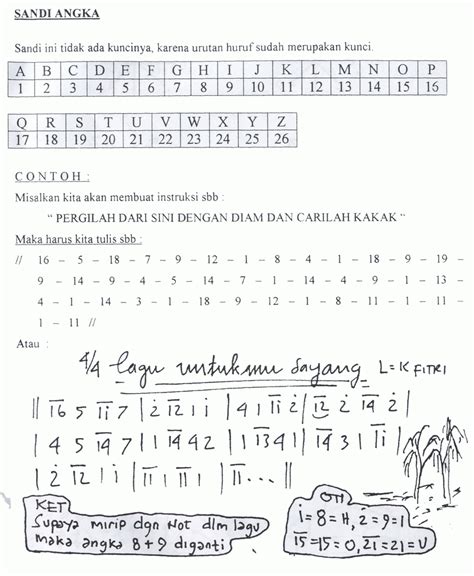 SANDI ANGKA
Sandi ini tidak ada kuncinya, karena urutan huruf sudah merupakan kunci.
A B C D E F G H I J K L M N O P
1 2 3 4 5 6 7 8 9 10 11 12 13 14 15 16
Q R S T U V W X Y Z
17 18 19 20 21 22 23 24 25 26
CONTOH :
Misalkan kita akan membuat instruksi sbb :
“ PERGILAH DARI SINI DENGAN DIAM DAN CARILAH KAKAK “
Maka harus kita tulis sbb :
// 16 – 5 – 18 – 7 – 9 – 12 – 1 – 8 – 4 – 1 – 18 – 9 – 19 –
9 – 14 – 9 – 4 – 5 – 14 – 7 – 1 – 14 – 4 – 9 – 1 – 13 –
4 – 1 – 14 – 3 – 1 – 18 – 9 – 12 – 1 – 8 – 11 – 1 – 11 –
1 – 11 //
Atau :
4/4 lagu untukmu sayang L=K FITRI
KET
Supaya mirip dgn Not dlm lagu
maka angka 8+9 diganti
i̇=8=H, 2̇=9=I
1̅5̅=15=O, 2̅1̅=21=U